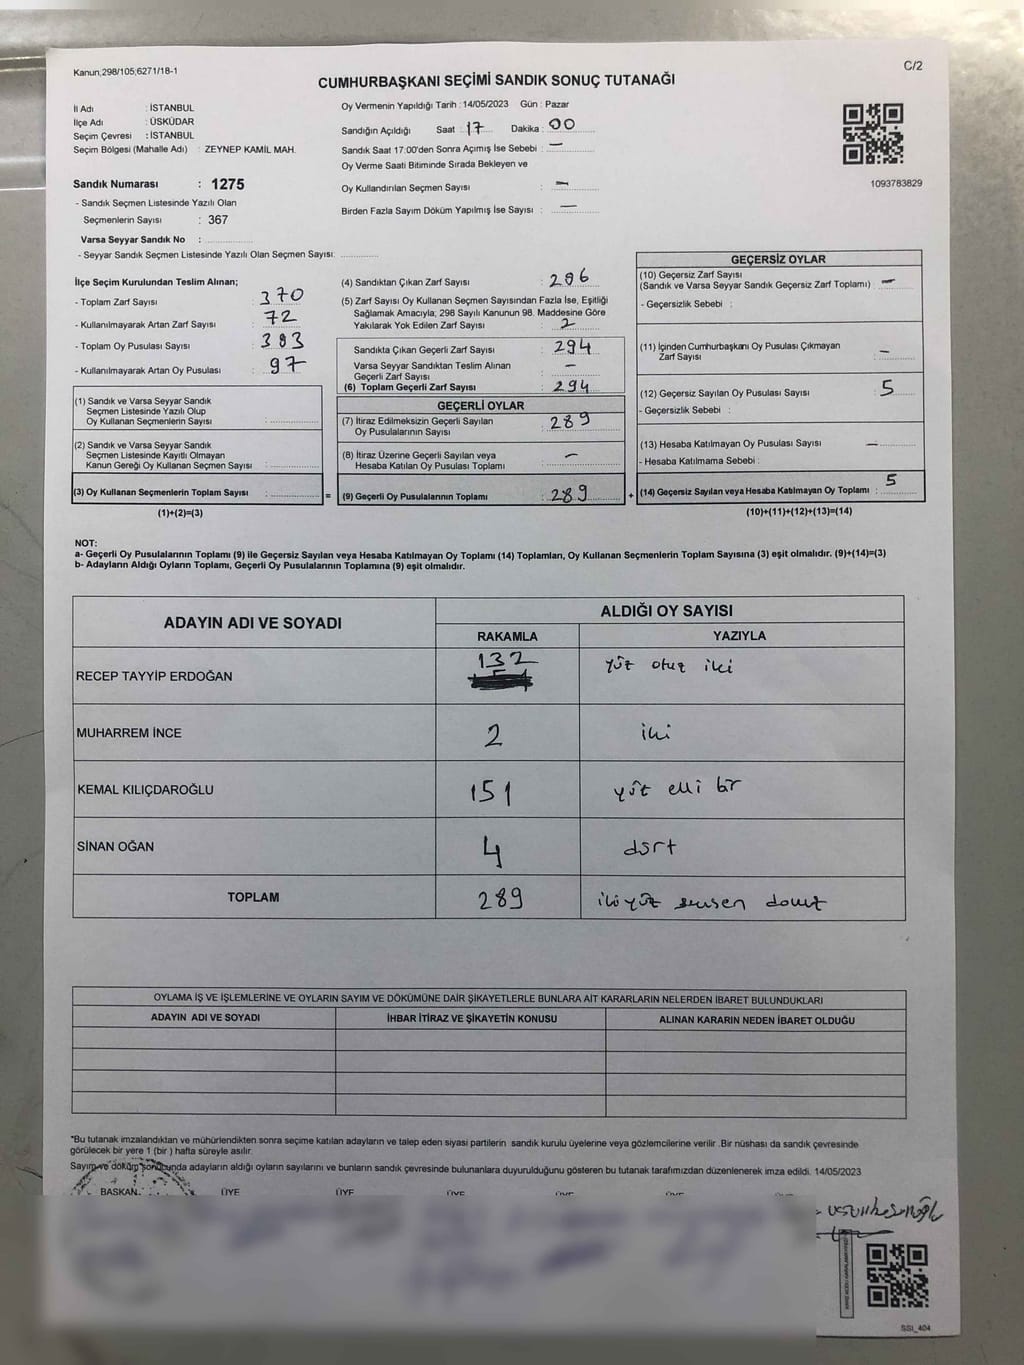 Kanun;298/105;6271/18-1
C/2
CUMHURBAŞKANI SEÇİMİ SANDIK SONUÇ TUTANAĞI
İl Adı : İSTANBUL
İlçe Adı : ÜSKÜDAR
Seçim Çevresi : İSTANBUL
Seçim Bölgesi (Mahalle Adı) : ZEYNEP KAMİL MAH.
Sandık Numarası : 1275
- Sandık Seçmen Listesinde Yazılı Olan
Seçmenlerin Sayısı : 367
Varsa Seyyar Sandık No :
- Seyyar Sandık Seçmen Listesinde Yazılı Olan Seçmen Sayısı:
Oy Vermenin Yapıldığı Tarih : 14/05/2023 Gün : Pazar
Sandığın Açıldığı Saat : 17 Dakika : 00
Sandık Saat 17:00'den Sonra Açımış İse Sebebi : —
Oy Verme Saati Bitiminde Sırada Bekleyen ve
Oy Kullandırılan Seçmen Sayısı : —
Birden Fazla Sayım Döküm Yapılmış İse Sayısı : —
1093783829
İlçe Seçim Kurulundan Teslim Alınan;
- Toplam Zarf Sayısı : 370
- Kullanılmayarak Artan Zarf Sayısı : 72
- Toplam Oy Pusulası Sayısı : 383
- Kullanılmayarak Artan Oy Pusulası : 97
(1) Sandık ve Varsa Seyyar Sandık
Seçmen Listesinde Yazılı Olup
Oy Kullanan Seçmenlerin Sayısı :
(2) Sandık ve Varsa Seyyar Sandık
Seçmen Listesinde Kayıtlı Olmayan
Kanun Gereği Oy Kullanan Seçmen Sayısı :
(3) Oy Kullanan Seçmenlerin Toplam Sayısı :
(1)+(2)=(3)
(4) Sandıktan Çıkan Zarf Sayısı : 296
(5) Zarf Sayısı Oy Kullanan Seçmen Sayısından Fazla İse, Eşitliği
Sağlamak Amacıyla; 298 Sayılı Kanunun 98. Maddesine Göre
Yakılarak Yok Edilen Zarf Sayısı : 2
Sandıkta Çıkan Geçerli Zarf Sayısı : 294
Varsa Seyyar Sandıktan Teslim Alınan
Geçerli Zarf Sayısı : —
(6) Toplam Geçerli Zarf Sayısı : 294
GEÇERLİ OYLAR
(7) İtiraz Edilmeksizin Geçerli Sayılan
Oy Pusulalarının Sayısı : 289
(8) İtiraz Üzerine Geçerli Sayılan veya
Hesaba Katılan Oy Pusulası Toplamı : —
= (9) Geçerli Oy Pusulalarının Toplamı : 289 +
GEÇERSİZ OYLAR
(10) Geçersiz Zarf Sayısı
(Sandık ve Varsa Seyyar Sandık Geçersiz Zarf Toplamı) : —
- Geçersizlik Sebebi :
(11) İçinden Cumhurbaşkanı Oy Pusulası Çıkmayan
Zarf Sayısı : —
(12) Geçersiz Sayılan Oy Pusulası Sayısı : 5
- Geçersizlik Sebebi :
(13) Hesaba Katılmayan Oy Pusulası Sayısı : —
- Hesaba Katılmama Sebebi :
(14) Geçersiz Sayılan veya Hesaba Katılmayan Oy Toplamı : 5
(10)+(11)+(12)+(13)=(14)
NOT:
a- Geçerli Oy Pusulalarının Toplamı (9) ile Geçersiz Sayılan veya Hesaba Katılmayan Oy Toplamı (14) Toplamları, Oy Kullanan Seçmenlerin Toplam Sayısına (3) eşit olmalıdır. (9)+(14)=(3)
b- Adayların Aldığı Oyların Toplamı, Geçerli Oy Pusulalarının Toplamına (9) eşit olmalıdır.
ADAYIN ADI VE SOYADI ALDIĞI OY SAYISI
RAKAMLA YAZIYLA
RECEP TAYYİP ERDOĞAN 132 yüz otuz iki
MUHARREM İNCE 2 iki
KEMAL KILIÇDAROĞLU 151 yüz elli bir
SİNAN OĞAN 4 dört
TOPLAM 289 iki yüz seksen dokuz
OYLAMA İŞ VE İŞLEMLERİNE VE OYLARIN SAYIM VE DÖKÜMÜNE DAİR ŞİKAYETLERLE BUNLARA AİT KARARLARIN NELERDEN İBARET BULUNDUKLARI
ADAYIN ADI VE SOYADI İHBAR İTİRAZ VE ŞİKAYETİN KONUSU ALINAN KARARIN NEDEN İBARET OLDUĞU
"Bu tutanak imzalandıktan ve mühürlendikten sonra seçime katılan adayların ve talep eden siyasi partilerin sandık kurulu üyelerine veya gözlemcilerine verilir .Bir nüshası da sandık çevresinde
görülecek bir yere 1 (bir ) hafta süreyle asılır.
Sayım ve döküm sonucunda adayların aldığı oyların sayılarını ve bunların sandık çevresinde bulunanlara duyurulduğunu gösteren bu tutanak tarafımızdan düzenlenerek imza edildi. 14/05/2023
BAŞKAN ÜYE ÜYE ÜYE ÜYE ÜYE ÜYE
SSI_404